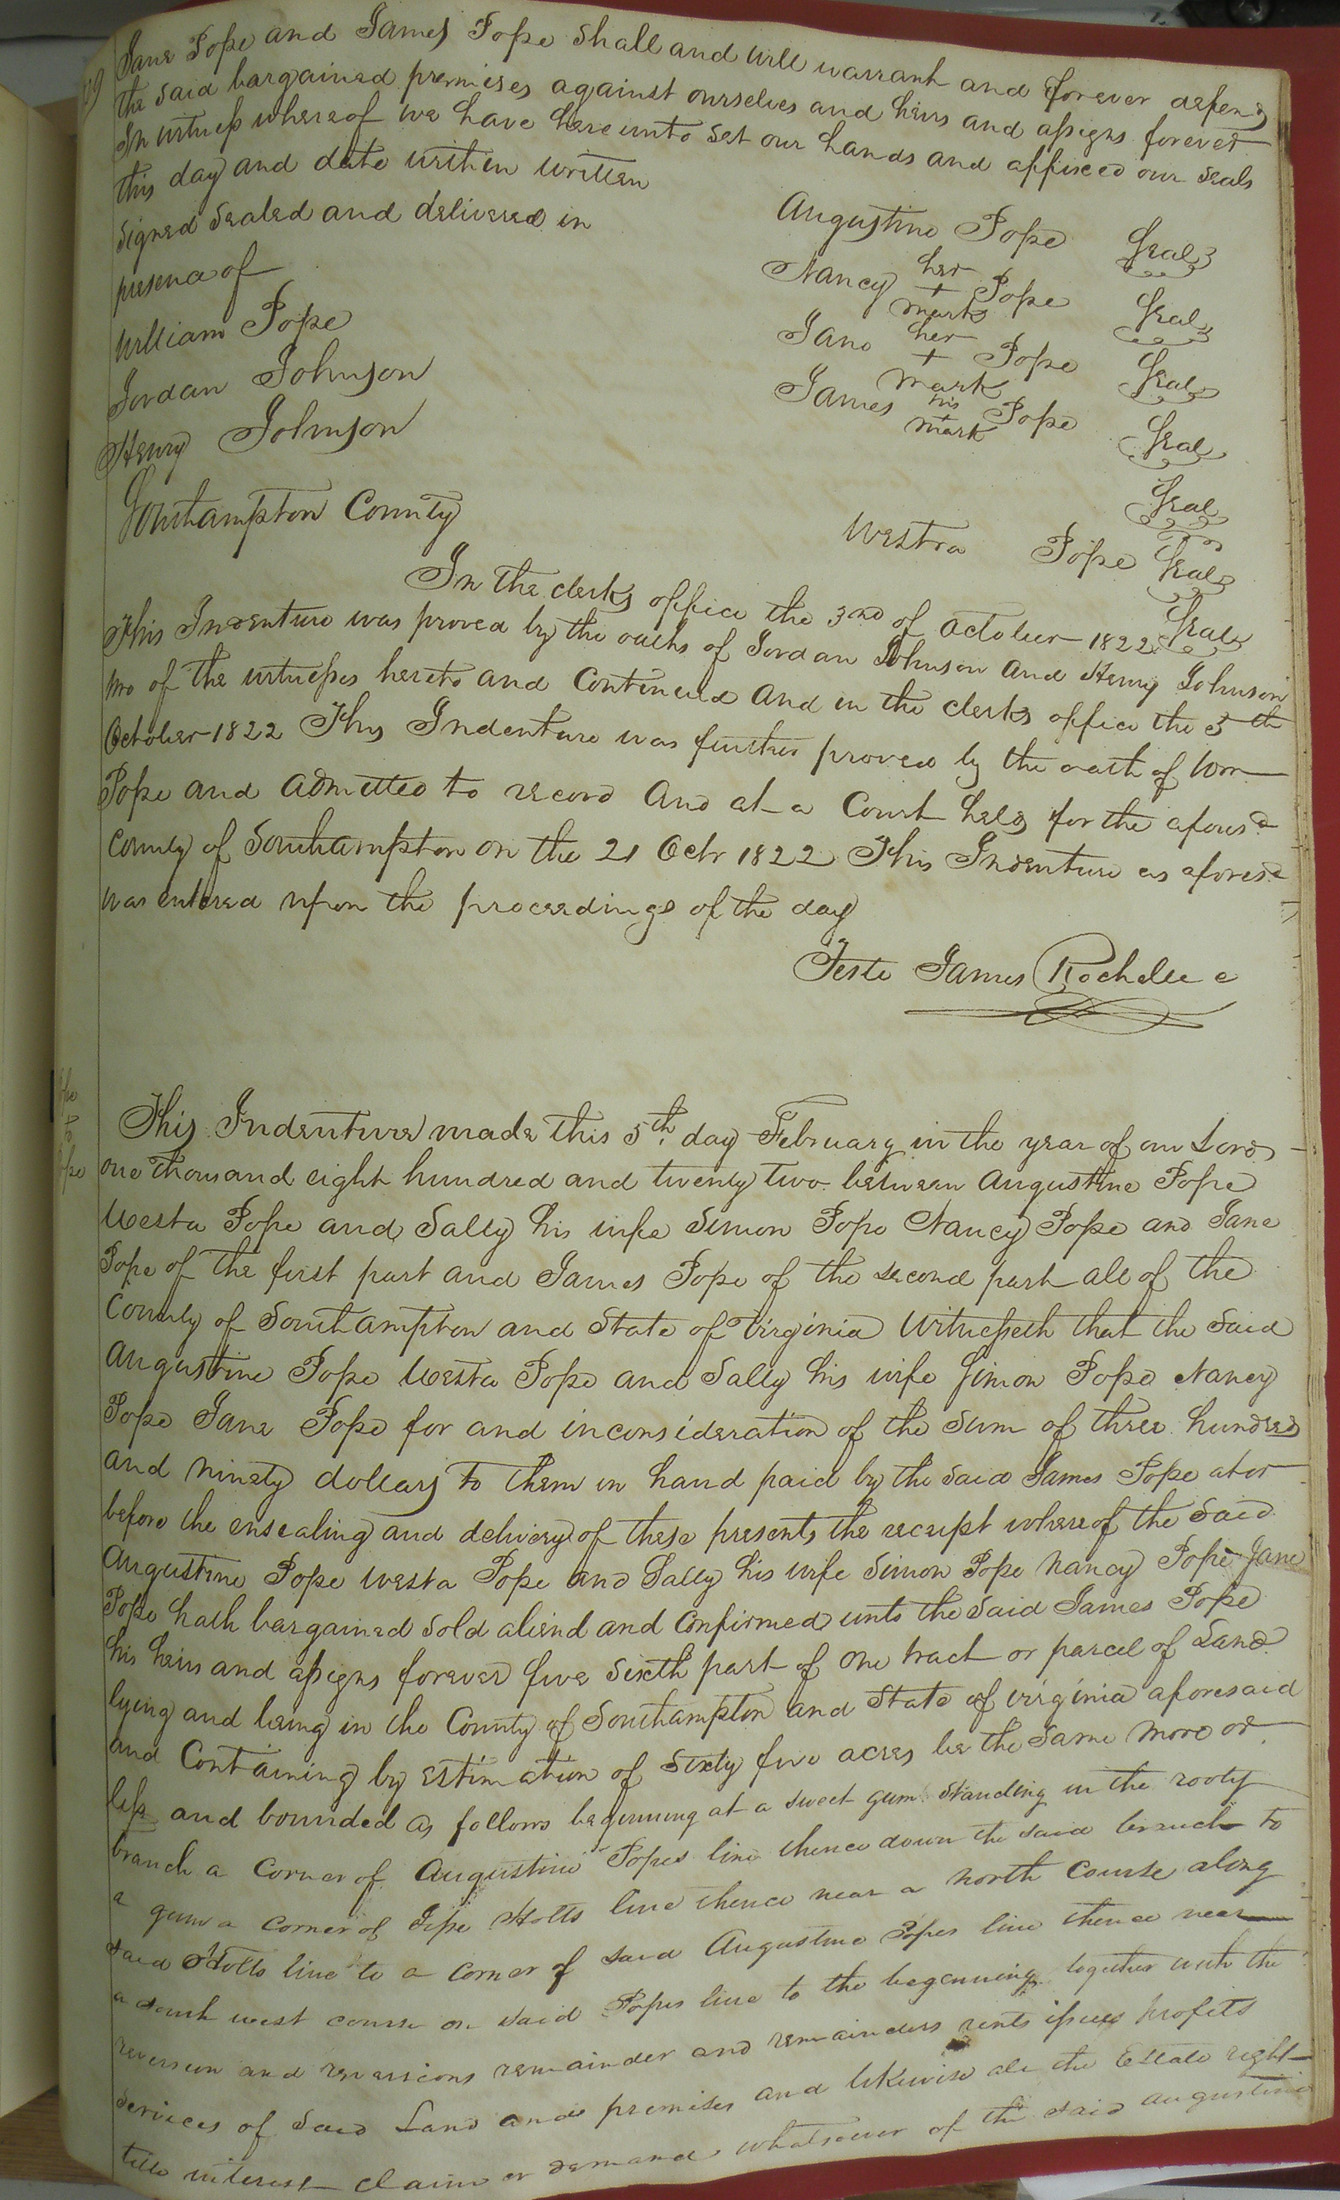 Jane Pope and James Pope shall and will warrant and forever defend
the said bargained premises against ourselves and heirs and assigns forever
In witness whereof we have hereunto set our hands and affixed our seals
this day and date within written
signed sealed and delivered in
presence of
William Pope
Jordan Johnson
Henry Johnson
Augustine Pope Seal
Nancy her + mark Pope Seal
Jane her + mark Pope Seal
James his mark Pope Seal
Seal
Westra Pope Seal
Seal
Southampton County
In the clerks office the 3rd of October 1822
This Indenture was proved by the oaths of Jordan Johnson and Henry Johnson
two of the witnesses hereto and Continued and in the clerks office the 5th
October 1822 This Indenture was further proved by the oath of Wm
Pope and admitted to record And at a Court held for the aforesd
County of Southampton on the 21 Octr 1822 This Indenture as aforesd
was entered upon the proceedings of the day
Teste James Rochelle c
This Indenture made this 5th day February in the year of our Lord
one thousand eight hundred and twenty two between Augustine Pope
Westa Pope and Sally his wife Simon Pope Nancy Pope and Jane
Pope of the first part and James Pope of the second part all of the
County of Southampton and State of Virginia Witnesseth that the said
Augustine Pope Westa Pope and Sally his wife Simon Pope Nancy
Pope Jane Pope for and inconsideration of the sum of three hundred
and ninety dollars to them in hand paid by the said James Pope at or
before the ensealing and delivery of these presents the receipt whereof the said
Augustine Pope Westa Pope and Sally his wife Simon Pope Nancy Pope Jane
Pope hath bargained sold aliend and Confirmed unto the said James Pope
his heirs and assigns forever five sixth part of one tract or parcel of Land
lying and being in the County of Southampton and State of Virginia aforesaid
and Containing by estimation of sixty five acres be the same more or
less and bounded as follows beginning at a sweet gum standing in the rooty
branch a Corner of Augustine Popes line thence down the said branch to
a gum a Corner of Jesse Holts line thence near a north Course along
said Holts line to a Corner of said Augustine Popes line thence near
a south west course on said Popes line to the beginning together with the
reversion and reversions remainder and remainders rents issues profits
services of said Land and premises and likewise all the Estate right
title interest claim or demand whatsoever of the said Augustine